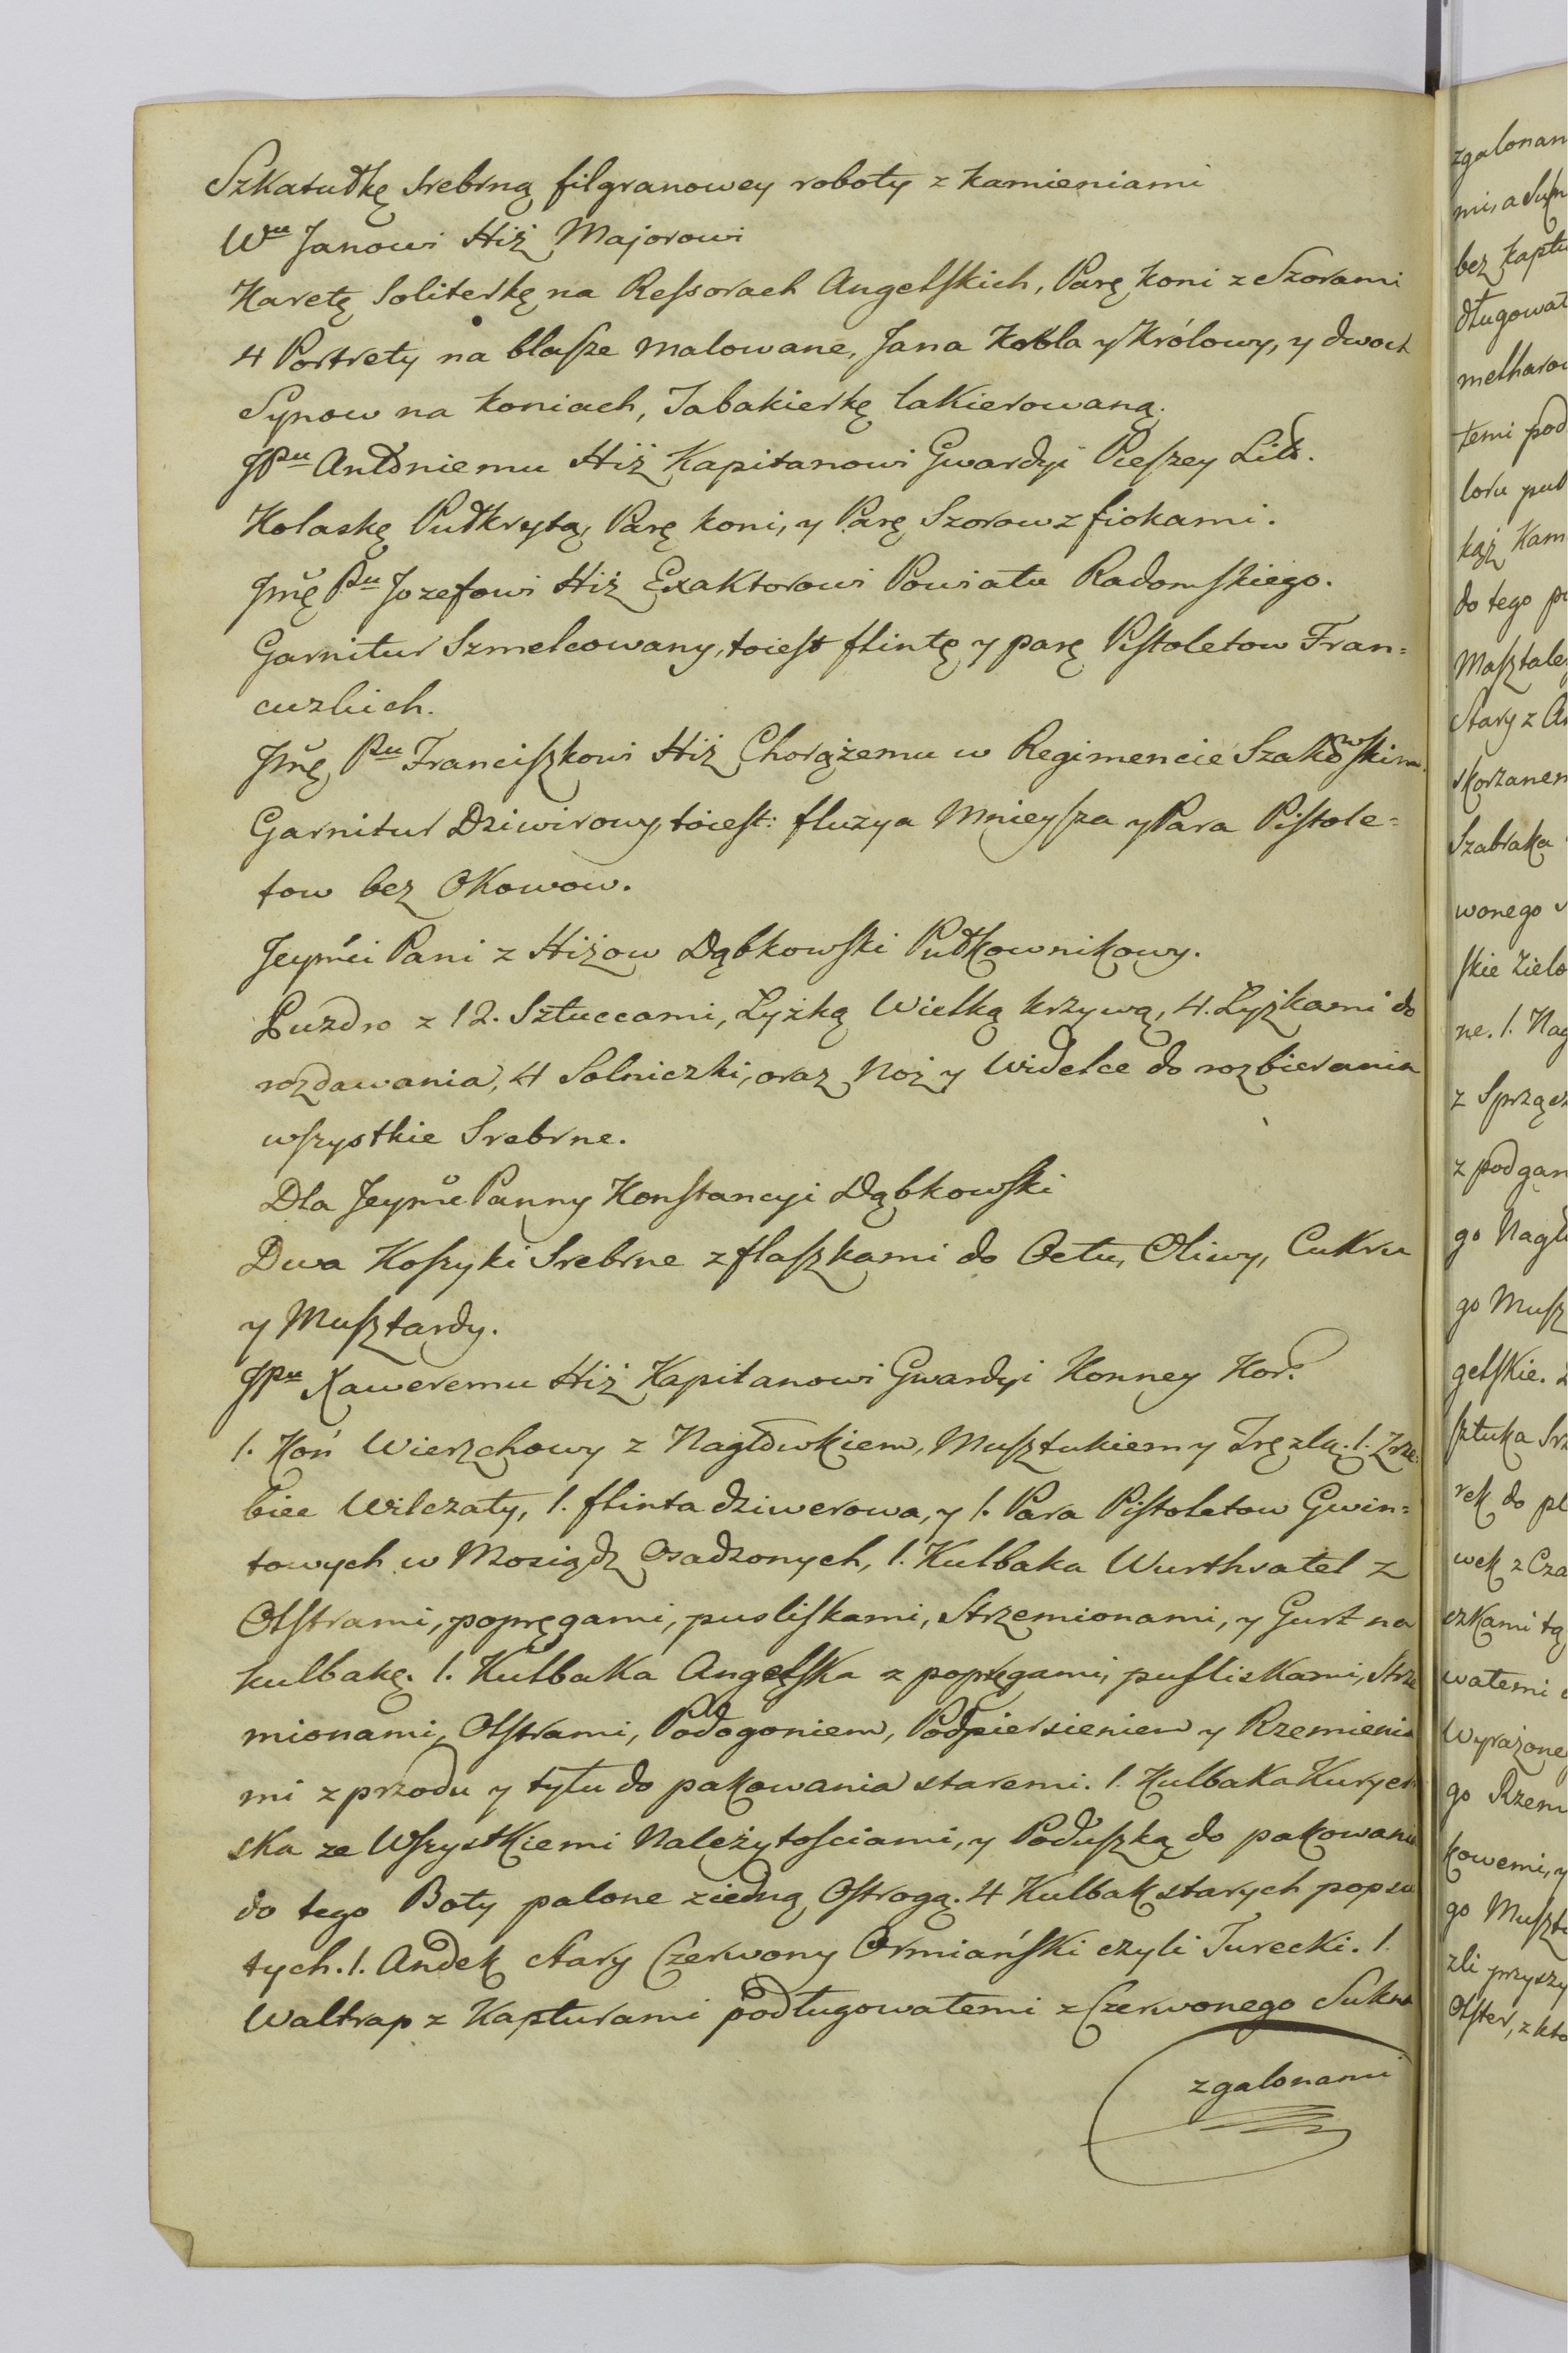 Szkatułkę Srebrną filgranowey roboty z kamieniami
Wu Janowi Hiż Majorowi
Karetę Soliterkę na Ressorach Angelskich, Parę koni z Szorami
4 Portrety na blasze malowane, Jana Kobla y Królowy, y dwoch
Synow na koniach, Tabakierkę lakierowaną.
JPu Antoniemu Hiż Kapitanowi Gwardyi Pieszey Litt.
Kolaskę Pułkrytą, Parę koni, y Parę Szorow z fiokami.
Jmę Pu Jozefowi Hiż Exaktorowi Powiatu Radomskiego.
Garnitur Szmelcowany, toiest flintę y parę Pistoletow Fran=
cuzkich.
Jmę Pu Franciszkowi Hiż Chorążemu w Regimencie Szakowskim
Garnitur Dziwirowy, toiest: fluzya Mnieysza y Para Pistole=
tow bez Okowow.
Jeymći Pani z Hiżow Dąbkowski Pułkownikowy.
Puzdro z 12. Sztuccami, Łyżką Wielką krzywą, 4. Łyżkami do
rozdawania, 4 Solniczki, oraz Noż y Widelce do rozbierania
wszystkie Srebrne.
Dla Jeymć Panny Konstancyi Dąbkowski
Dwa Koszyki Srebrne z flaszkami do Octu, Oliwy, Cukru
y Musztardy.
JPu Xaweremu Hiż Kapitanowi Gwardyi Konney Kor.
1. Koń Wierzchowy z Nagłowkiem, Musztukiem y Tręzlą. 1. Zrze=
biec Wilczaty, 1. flinta dziwerowa, y 1. Para Pistoletow Gwin=
towych w Mosiądz Osadzonych, 1. Kulbaka Wurthsatel z
Olstrami, popręgami, pusliskami, Strzemionami, y Gurt na
kulbakę. 1. Kulbaka Angelska z popręgami, pusliskami, Strze
mionami, Olstrami, Podogoniem, Podpiersieniem y Rzemienia
mi z przodu y tyłu do pakowania staremi. 1. Kulbaka Kuryer
ska ze Wszystkiemi Należytosciami, y Poduszką do pakowania
do tego Boty palone z iedną Ostrogą. 4 Kulbak starych popsu
tych. 1. Andek stary Czerwony Ormiański czyli Turecki. 1.
Waltrap z Kapturami podługowatemi z Czerwonego Sukna
zgalonami